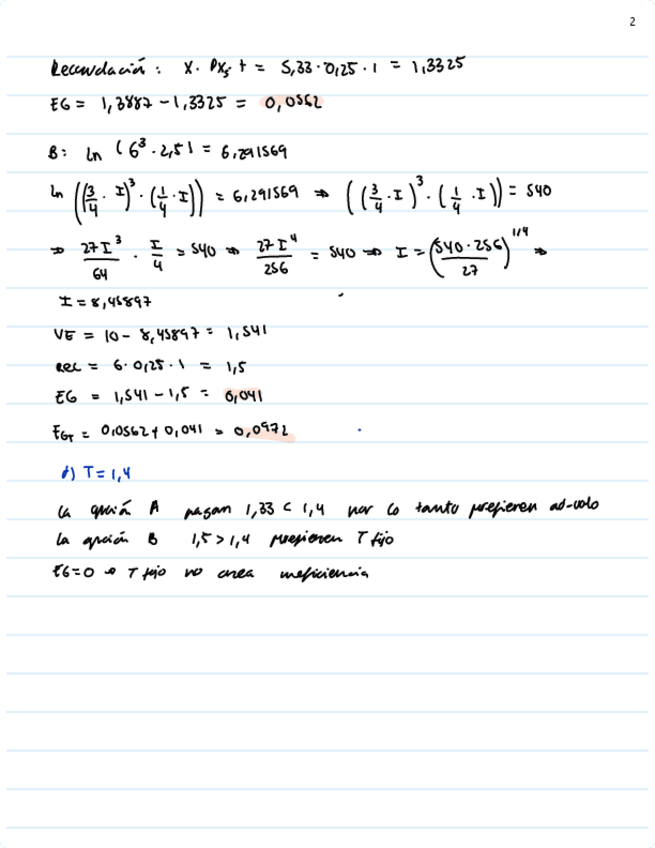 2
Recaudación : X · Px · t = 5,33 · 0,25 · 1 = 1,3325
EG = 1,3887 - 1,3325 = 0,0562
B: ln (6³ · 2,5) = 6,291569
ln ((3/4 · I)³ · (1/4 · I)) = 6,291569 ⇒ ((3/4 · I)³ · (1/4 · I)) = 540
⇒ 27I³/64 · I/4 = 540 ⇒ 27I⁴/256 = 540 ⇒ I = (540 · 256/27)^1/4 ⇒
I = 8,45897
VE = 10 - 8,45897 = 1,541
Rec = 6 · 0,25 · 1 = 1,5
EG = 1,541 - 1,5 = 0,041
EGT = 0,0562 + 0,041 = 0,0972
T = 1,4
la opción A pagan 1,33 < 1,4 por lo tanto prefieren ad-valo
la opción B 1,5 > 1,4 prefieren T fijo
EG = 0 T fijo no crea ineficiencia